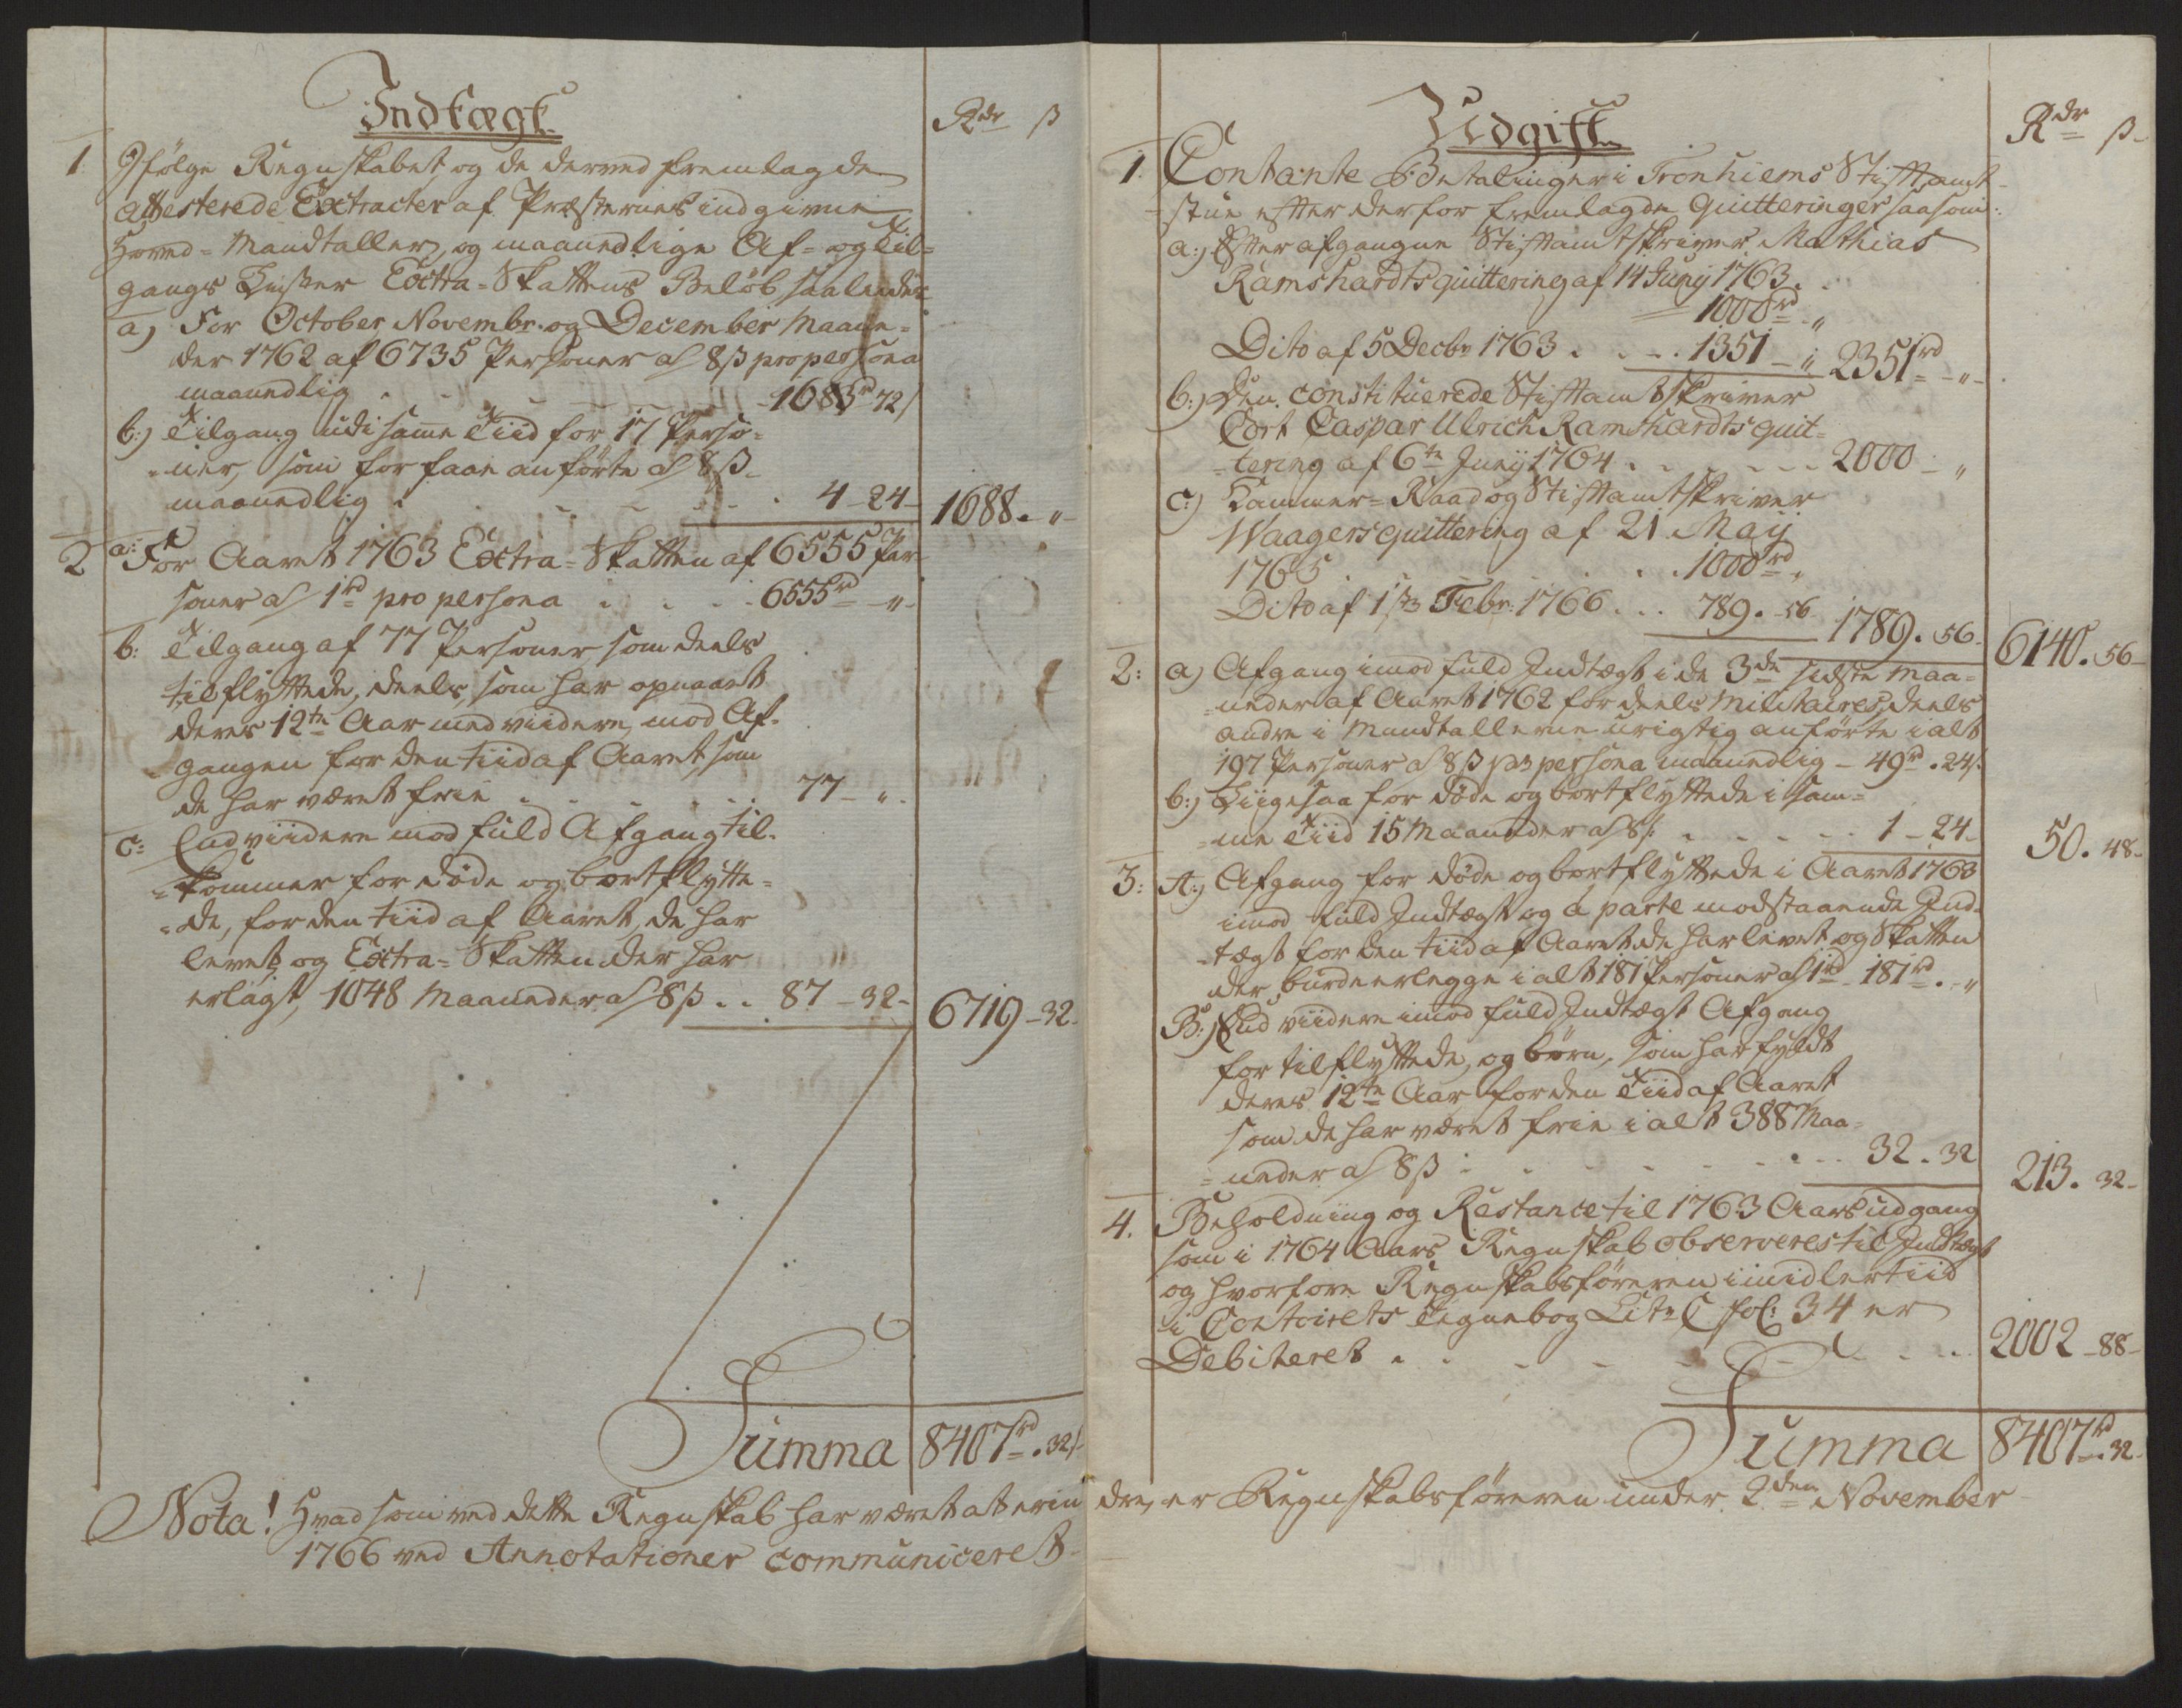 Indtægt
Rdr ß
1. Ifølge Regnskabet og de derved fremlagde
attesterede Extracter af Præsternes indgivne
Hoved-Mandtaller, og maanedlige Af- og Til-
gangs Lister Extra-Skattens Beløb saaledes
a) For October Novembr. og December Maane-
der 1762 af 6735 Personer a 8 ß pro persona
maanedlig . . . 1683rd 72/
b:) Tilgang udi samme Tiid for 17 Perso-
-ner, som for faae anførte a 8 ß
maanedlig . . . 4 - 24 - 1688. "
2 a: For Aaret 1763 Extra-Skatten af 6555 Per-
soner a 1rd pro persona . . . 6555rd - " -
b: Tilgang af 77 Personer som deels
tilflyttede, deels, som har opnaaet
deres 12te Aar med viidere, mod Af-
gangen for den tiid af Aaret, som
de har været frie . . . 77 - " -
c: End viidere mod fuld Afgang til-
-kommer for døde og bortflytte-
-de, for den tiid af Aaret, de har
levet, og Extra-Skatten der har
erlagt, 1048 Maaneder a 8 ß . . 87 - 32 - 6719 - 32 -
Summa 8407rd . 32/-
Udgift
Rdr ß
1. Contante Betalinger i Tronhiems Stiftamt-
-stue efter derfor fremlagde Quitteringer saasom:
a:) Efter afgangne Stiftamtskriver Mathias
Ramshardts quittering af 14 Junij 1763 . .
1000rd "
Dito af 5 Decbr 1763 . . . 1351 - " 2351rd - " -
b:) Den constituerede Stiftamtskriver
Cort Caspar Ulrich Ramshardts quit-
-tering af 6te Junij 1764 . . . 2000 - "
c:) Kammer-Raad og Stiftamtskriver
Waagers quittering af 21 May
1765 . . . 1000rd "
Dito af 1ste Febr: 1766 . . . 789. 56 1789. 56 - 6140. 56 -
2: a) Afgang imod fuld Indtægt i de 3de sidste Maa-
-neder af Aaret 1762 for deels Militaires, deels
andre i Mandtallerne urigtig anførte i alt
197 Personer a 8 ß pro persona maanedlig - 49rd . 24/.
b:) Liigesaa for døde og bortflyttede i sam-
-me Tiid 15 Maaneder a 8 ß . . . 1 - 24 - 50. 48 -
3: A:) Afgang for døde og bortflyttede i Aaret 1763
imod fuld Indtægt og a parte modstaaende Ind-
-tægt for den tiid af Aaret de har levet og Skatten
der burde erlegge i alt 181 Personer a 1rd 181rd . - "
B:) End viidere imod fuld Indtægt Afgang
for tilflyttede, og børn, som har fyldt
deres 12te Aar for den Tiid af Aaret
som de har været frie i alt 388 Maa-
-neder a 8 ß . . . 32 . 32 213. 32 -
4. Beholdning og Restance til 1763 Aars udgang
som i 1764 Aars Regnskab observeres til Indtægt
og hvorfore Regnskabsføreren imidlertiid
i Contoirets Tegnebog Litr C fol: 34 er
Debiteret . . . 2002 - 88 -
Summa 8407rd . 32 -
Nota! Hvad som ved dette Regnskab har været at erindre, er Regnskabsføreren under 2den November
1766 ved Annotationer communiceret -